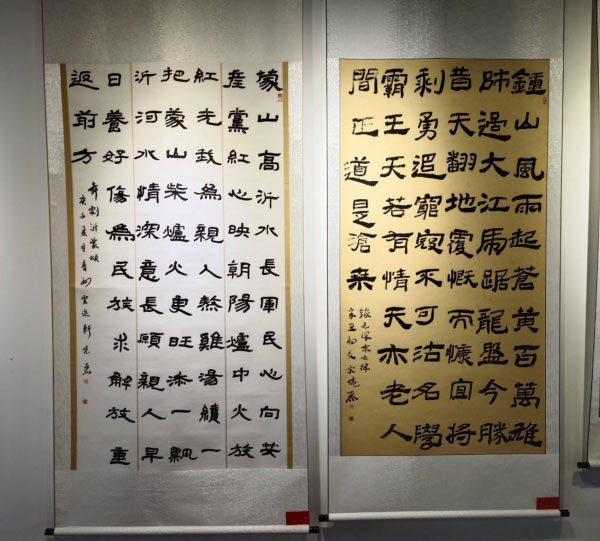 鍾山風雨起蒼黃百萬雄
師過大江虎踞龍盤今勝
昔天翻地覆慨而慷宜將
剩勇追窮寇不可沽名學
霸王天若有情天亦老人
間正道是滄桑
錄毛澤東七律
蒙山高沂水長軍民心向共
產黨紅心映朝陽爐中火放
紅光我為親人熬雞湯續一
把蒙山柴爐火更旺添一瓢
沂河水情深意長願親人早
日養好傷為民族求解放重
返前方
舞劇沂蒙頌
庚子夏月青州